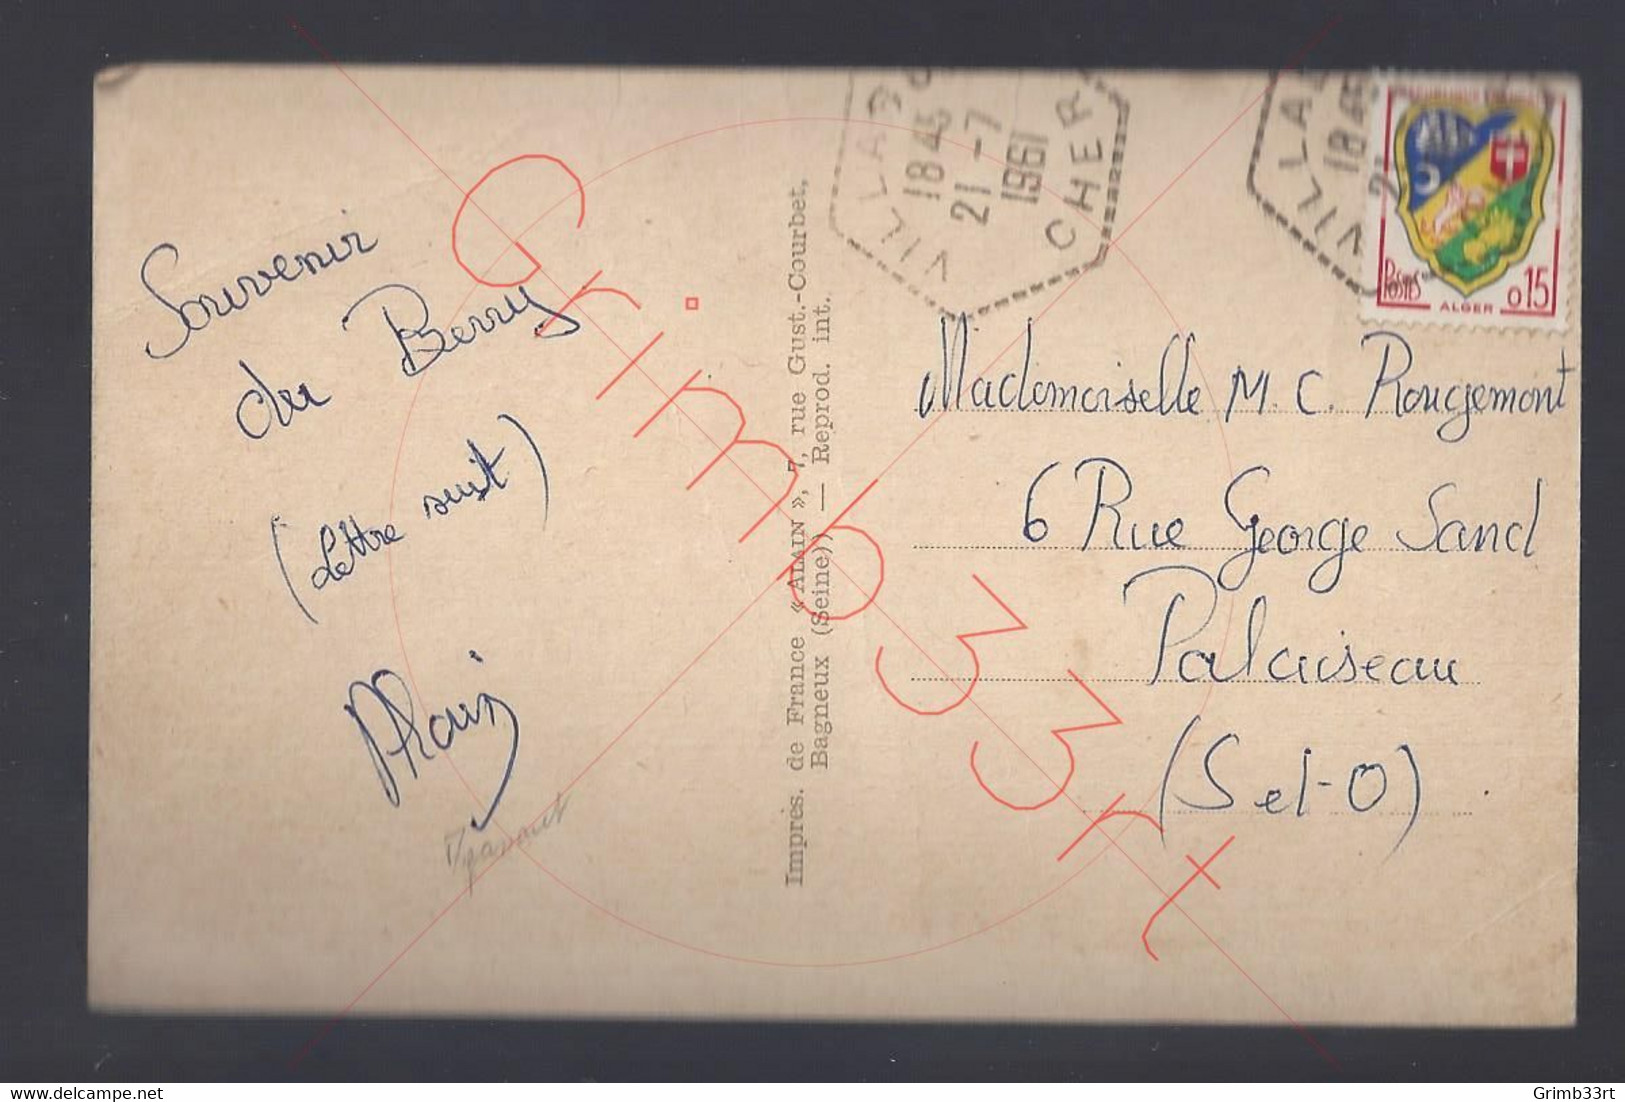 Souvenir
du Berry
(Lettre suit)
Alain
Imprès. de France « ALAIN », 7, rue Gust.-Courbet,
Bagneux (Seine)) — Reprod. int.
18 45
21 - 7
1961
CHER
18 45
21
POSTES
ALGER
0,15
Mademoiselle M. C. Rougemont
6 Rue George Sand
Palaiseau
(S et-O)
Grimb33rt
delcampe.net
Grimb33rt